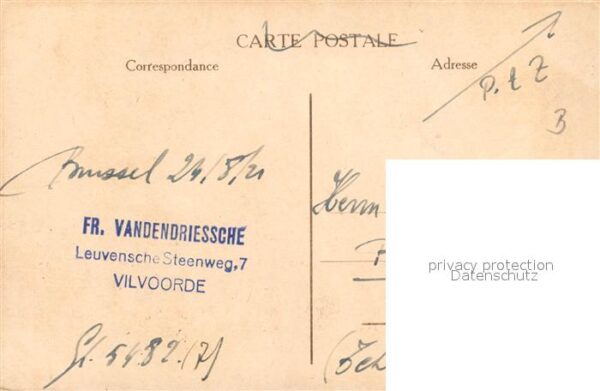 CARTE POSTALE
Correspondance
Adresse
P. t Z
B
Brussel 24/8/21
FR. VANDENDRIESSCHE
Leuvensche Steenweg,7
VILVOORDE
Herrn
privacy protection
Datenschutz
Gl. 5482 (7)